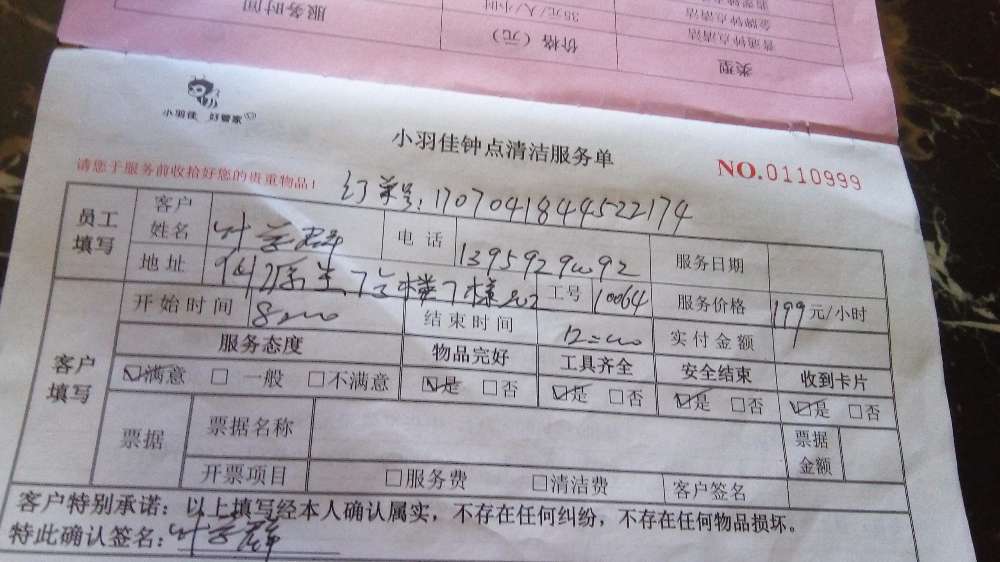 服务时间
35元/人/小时
价格(元)
金牌钟点清洁
普通钟点清洁
类型
小羽佳 好管家
小羽佳钟点清洁服务单
NO.0110999
请您于服务前收拾好您的贵重物品!
订单号:1707041844522174
员工填写
客户姓名
叶
电话
服务日期
地址
7号楼7楼702
工号
10064
服务价格
199元/小时
开始时间
8:00
结束时间
12:00
实付金额
客户填写
服务态度
物品完好
工具齐全
安全结束
收到卡片
☑满意 □一般 □不满意
☑是 □否
☑是 □否
☑是 □否
☑是 □否
票据
票据名称
票据金额
开票项目
□服务费
□清洁费
客户签名
客户特别承诺:以上填写经本人确认属实,不存在任何纠纷,不存在任何物品损坏。
特此确认签名:叶